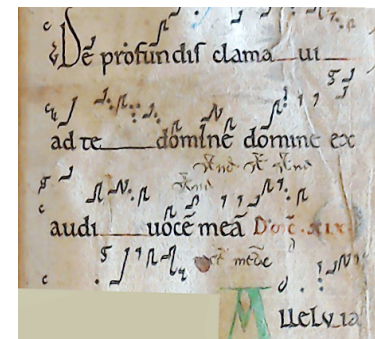 De᷃ profūndis clama ui
ad te dominē domine ex
audi uocē meā Dom̄c̄. xix.
Alleluia